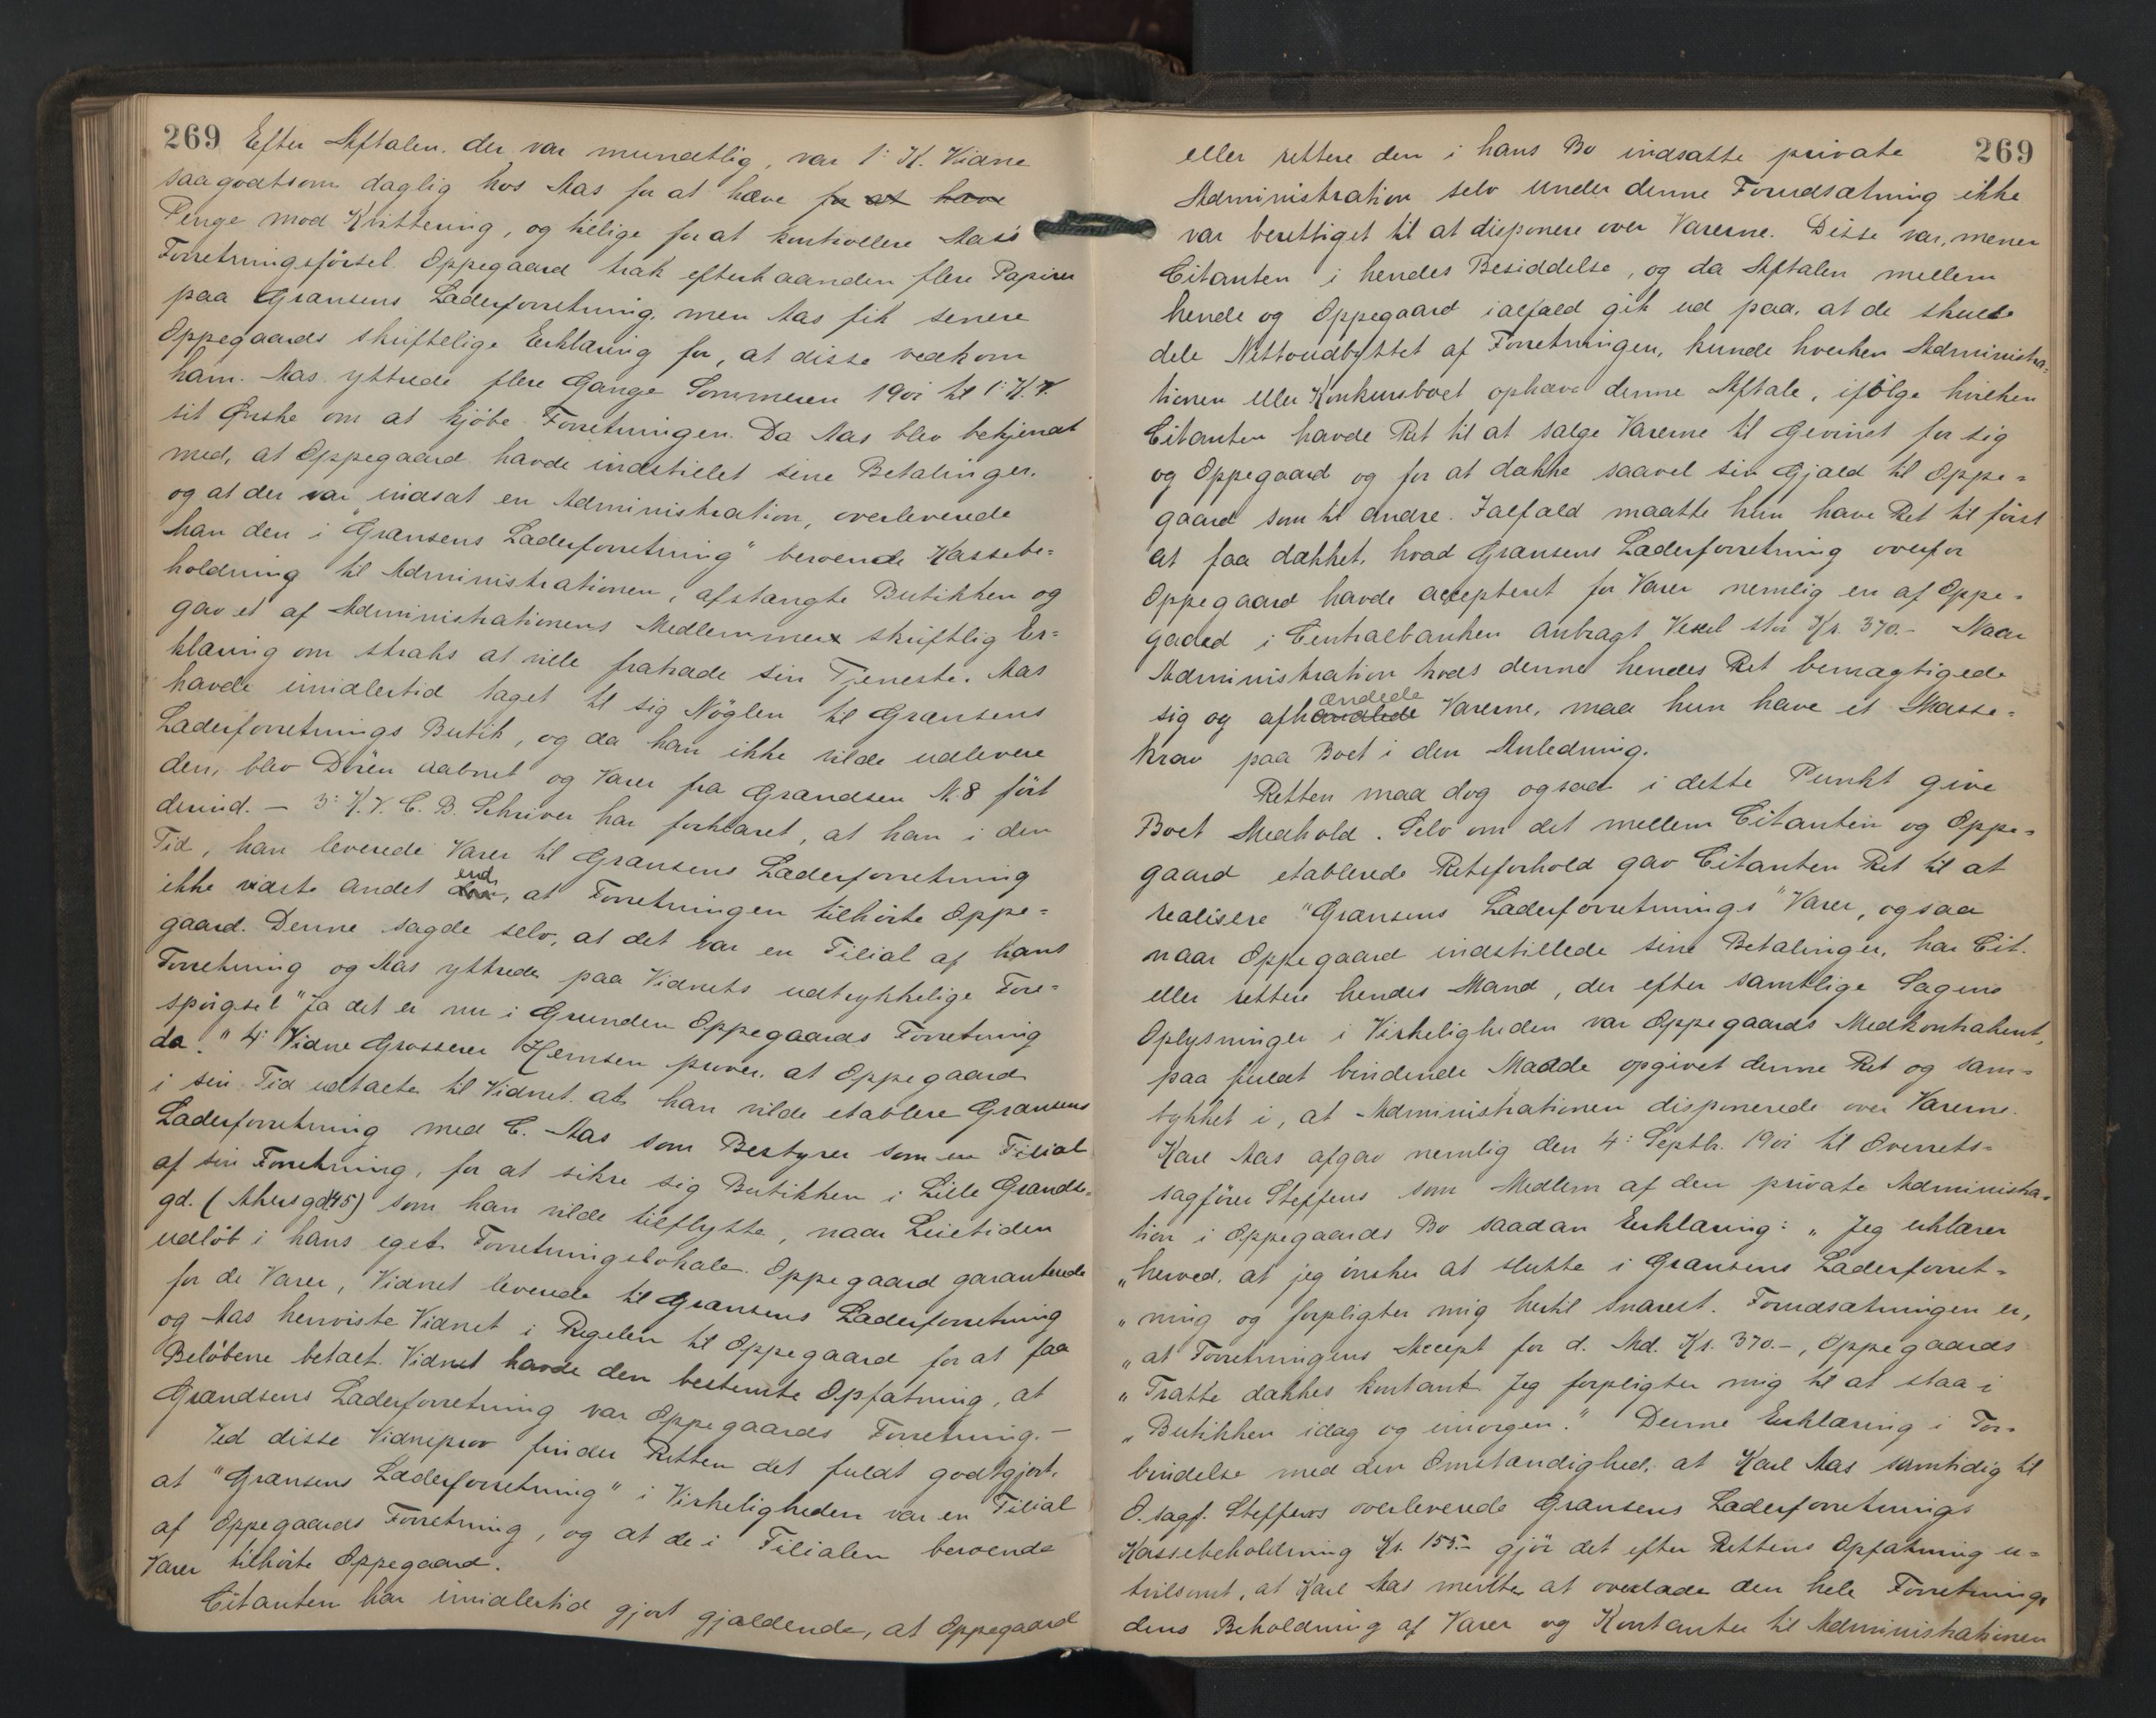 269 Efter Aftalen. der var mundtlig, var 1: K. Vidne
saagodtsom daglig hos Aas for at hæve for at hæve
Penge mod Kvittering, og tillige for at kontrollere Aas's
Forretningsførsel. Oppegaard trak efterhaanden flere Papirer
paa Grænsens Læderforretning, men Aas fik senere
Oppegaards skriftelige Erklæring for, at disse vedkom
ham. Aas yttrede flere Gange Sommeren 1901 til 1: K.V.
sit Ønske om at kjøbe Forretningen. Da Aas blev bekjendt
med, at Oppegaard havde indstillet sine Betalinger,
og at der var indsat en Administration, overleverede
han den i "Grænsens Læderforretning" beroende Kassebe=
holdning til Administrationen, afstængte Butikken og
gav et af Administrationens Medlemmer skriftlig Er=
klæring om straks at ville fratræde sin Tjeneste. Aas
havde imidlertid taget til sig Nøglen til Grænsens
Læderforretnings Butik, og da han ikke vilde udlevere
den, blev Døren aabnet og Varer fra Grændsen N. 8 ført
derind. – 3: K.V. C. B. Schriver har forklaret, at han i den
Tid, han leverede Varer til Grænsens Læderforretning
ikke vidste andet end, at Forretningen tilhørte Oppe=
gaard. Denne sagde selv, at det var en Filial af hans
Forretning og Aas yttrede paa Vidnets udtrykkelige Fore=
spørgsel "Ja det er nu i Grunden Oppegaards Forretning
da." 4: Vidne Grosserer Hemsen prover, at Oppegaard
i sin Tid udtalte til Vidnet at han vilde etablere Grænsens
Læderforretning med C. Aas som Bestyrer som en Filial
af sin Forretning, for at sikre sig Butikken i Lille Grændse=
gd. (Akersgd 45) som han vilde tilflytte, naar Leietiden
udløb i hans eget Forretningslokale. Oppegaard garanterede
for de Varer, Vidnet leverede til Grænsens Læderforretning
og Aas henviste Vidnet i Regelen til Oppegaard for at faa
Beløbene betalt. Vidnet havde den bestemte Opfatning, at
Grændsens Læderforretning var Oppegaards Forretning. –
Ved disse Vidneprov finder Retten det fuldt godtgjort,
at "Grænsens Læderforretning" i Virkeligheden var en Filial
af Oppegaards Forretning, og at de i Filialen beroende
Varer tilhørte Oppegaard.
Citanten har imidlertid gjort gjældende, at Oppegaard
eller rettere den i hans Bo indsatte private 269
Administration selv under denne Forudsætning ikke
var berettiget til at disponere over Varerne. Disse var, mener
Citanten i hendes Besiddelse, og da Aftalen mellem
hende og Oppegaard ialfald gik ud paa, at de skulde
dele Nettoudbyttet af Forretningen, kunde hverken Administra=
tionen eller Konkursboet ophæve denne Aftale, ifølge hvilken
Citanten havde Ret til at sælge Varerne til Gevinst for sig
og Oppegaard og for at dække saavel sin Gjæld til Oppe=
gaard som til andre. Ialfald maatte hun have Ret til først
at faa dækket, hvad Grænsens Læderforretning overfor
Oppegaard havde accepteret for Varer nemlig en af Oppe=
gaard i Centralbanken anbragt Vexel stor Kr. 370.– Naar
Administration trods denne hendes Ret bemægtigede
sig og afhændede Varerne, maa hun have et Masse=
krav paa Boet i den Anledning.
Retten maa dog ogsaa i dette Punkt give
Boet Medhold. Selv om det mellem Citanten og Oppe=
gaard etablerede Retsforhold gav Citanten Ret til at
realisere "Grænsens Læderforretnings" Varer, ogsaa
naar Oppegaard indstillede sine Betalinger, har Cit.
eller rettere hendes Mand, der efter samtlige Sagens
Oplysninger i Virkeligheden var Oppegaards Medkontrahent,
paa fuldt bindende Maade opgivet denne Ret og sam=
tykket i, at Administrationen disponerede over Varerne.
Karl Aas afgav nemlig den 4: Septbr. 1901 til Overrets=
sagfører Steffens som Medlem af den private Administra=
tion i Oppegaards Bo saadan Erklæring: „Jeg erklærer
„herved, at jeg ønsker at slutte i Grænsens Læderforret=
„ning og forpligter mig hertil snarest. Forudsætningen er,
„at Forretningens Accept for d. Md. Kr. 370.–, Oppegaards
„Tratte dækkes kontant. Jeg forpligter mig til at staa i
„Butikken idag og imorgen." Denne Erklæring i For=
bindelse med den Omstændighed, at Karl Aas samtidig til
O.sagf. Steffens overleverede Grænsens Læderforretnings
Kassebeholdning Kr. 155.– gjør det efter Rettens Opfatning u=
tvilsomt, at Karl Aas mente at overlade den hele Forretning,
dens Beholdning af Varer og Kontanter til Administrationen